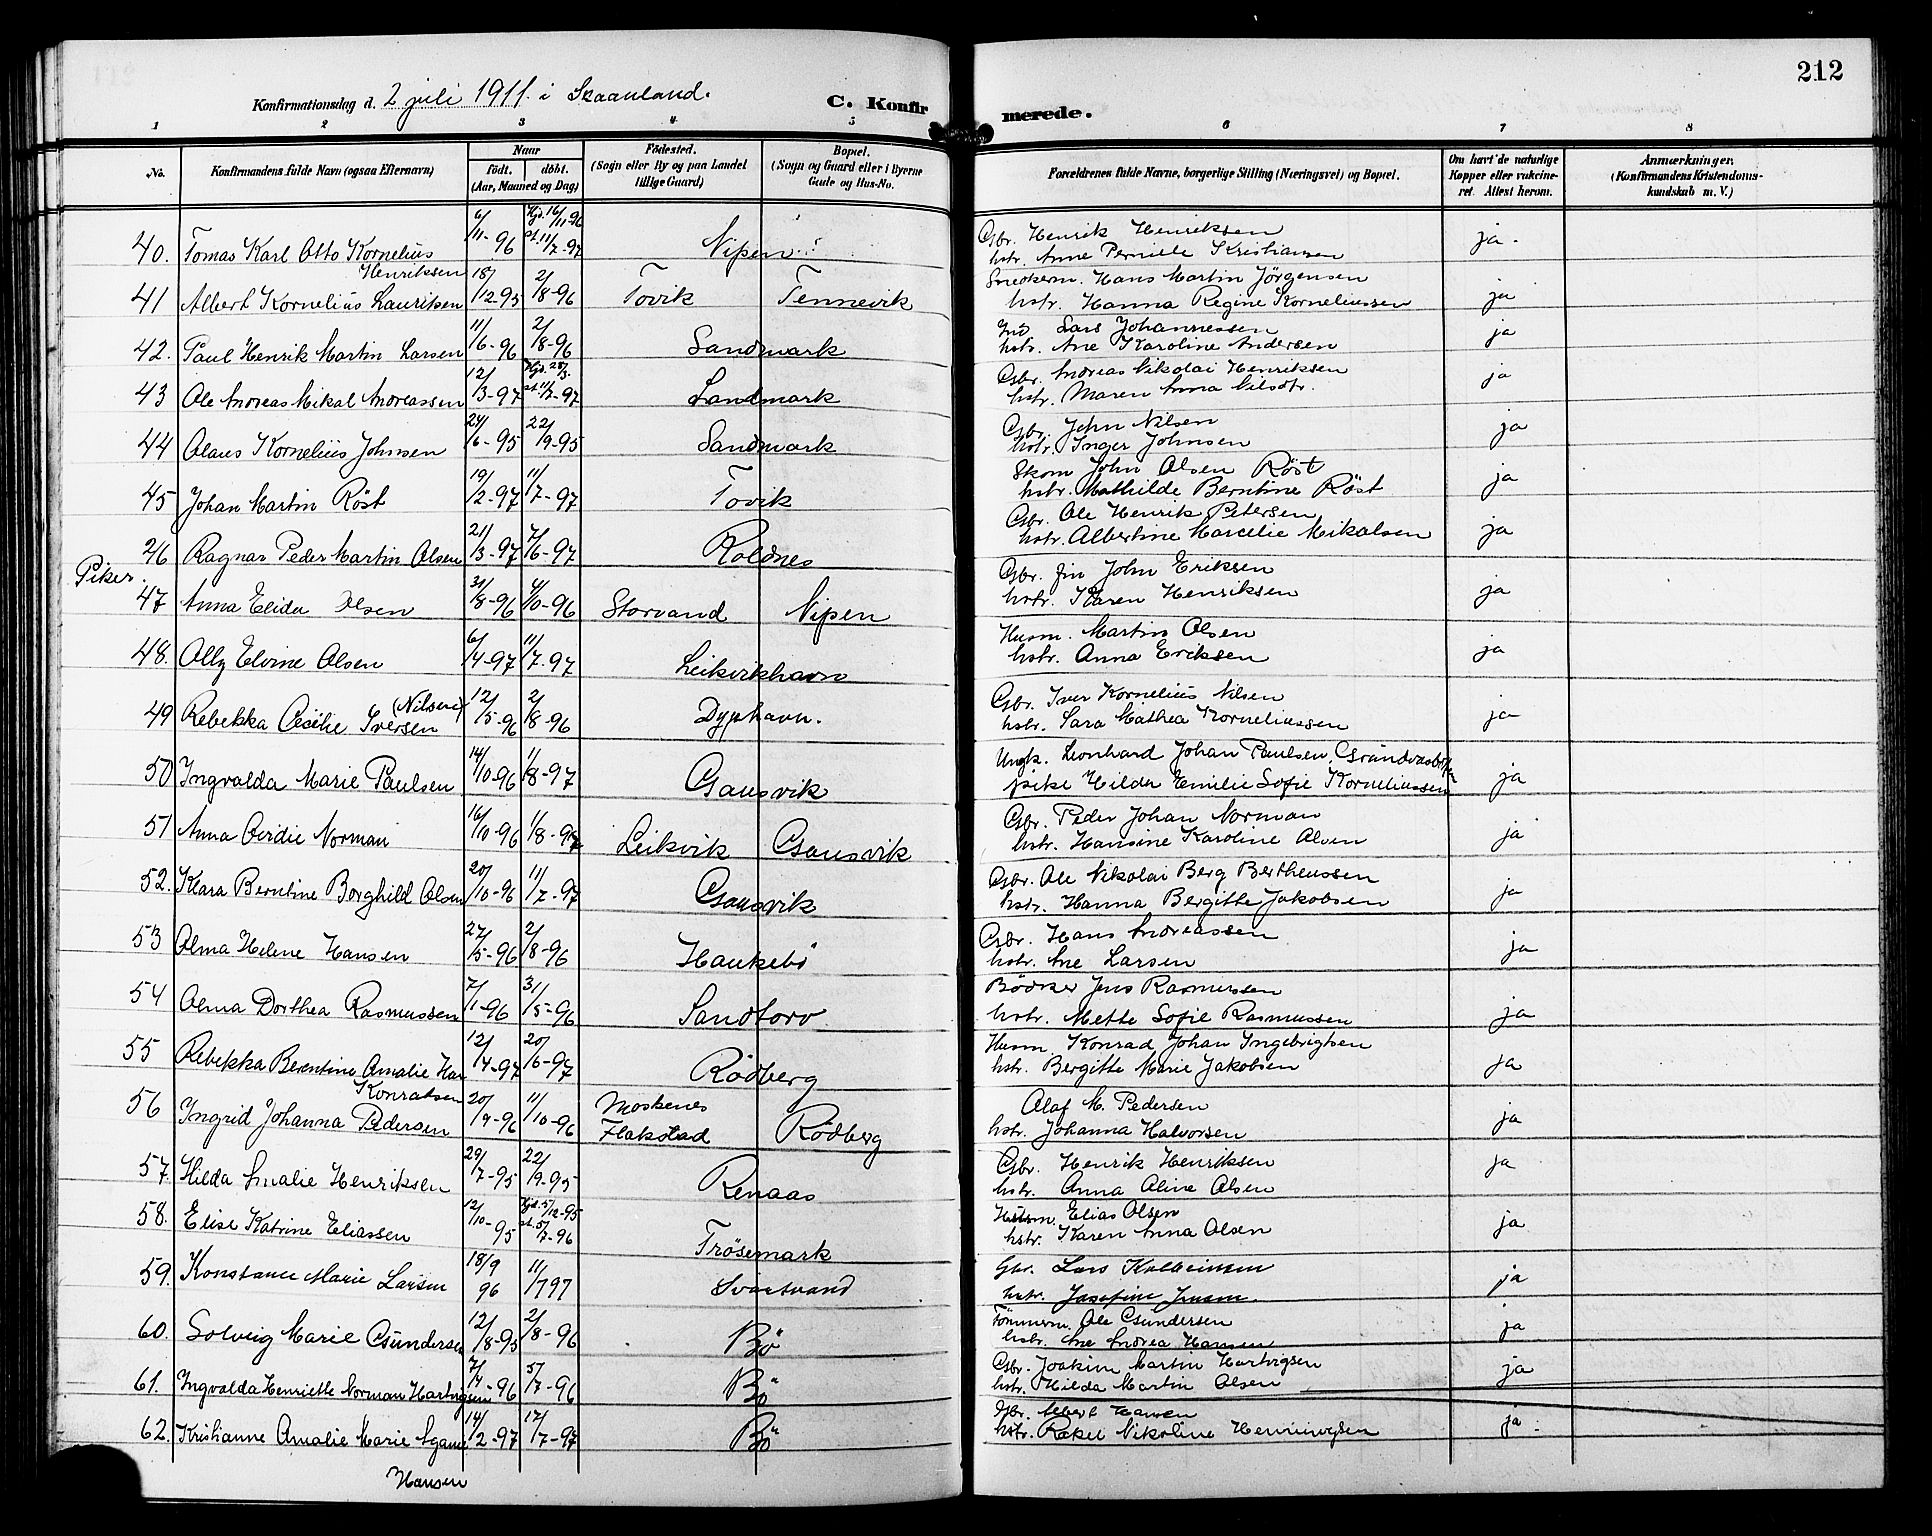 212
Konfirmationsdag d. 2 juli 1911. i Skaanland.
C. Konfirmerede.
1 2 3 4 5 6 7 8
No. Konfirmandens fulde Navn (ogsaa Efternavn) Naar født. døbt. (Aar, Maaned og Dag) Fødested. (Sogn eller By og paa Landet tillige Gaard) Bopæl. (Sogn og Gaard eller i Byerne Gade og Hus-No. Forældrenes fulde Navne, borgerlige Stilling (Næringsvei) og Bopæl. Om havt de naturlige Kopper eller vakcineret. Attest herom. Anmærkninger. (Konfirmandens Kristendomskundskab m. V.)
40. Tomas Karl Otto Kornelius Henriksen 6/11-96 Hjd. 16/11-96 st. 11/7-97 Nipen Gbr. Henrik Henriksen hstr. Anne Pernele Kristiansen ja.
41 Albert Kornelius Lauritsen 18/12-95 2/8-96 Tovik Tennevik Smedkem. Hans Martin Jörgensen hstr. Hanna Regine Korneliussen ja
42. Paul Henrik Martin Larsen 11/6-96 2/8-96 Sandmark Ind. Lars Johannessen hstr. Ane Karoline Andersen ja
43 Ole Andreas Mikal Andreassen 12/3-97 Hjd. 28/3. st. 11/7-97 Sandmark Gbr. Andreas Nikolai Henriksen hstr. Maren Anna Nilsdtr. ja
44 Olaus Kornelius Johnsen 24/6-95 22/9-95 Sandmark Gbr. John Nilsen hstr. Inger Johnsen ja
45 Johan Martin Röst 19/2-97 11/7-97 Tovik Skom John Olsen Röst hstr. Mathilde Berntine Röst ja
46 Ragnar Peder Martin Olsen 21/3-97 7/6-97 Roldnes Gbr. Ole Henrik Petersen hstr. Albertine Marcelie Mikalsen ja
Piker.
47 Anna Elida Olsen 31/8-96 4/10-96 Storvand Nipen Gbr. fin John Eriksen hstr. Karen Henriksen ja
48. Olly Elvine Olsen 6/4-97 11/7-97 Leikvikhavn Husm. Martin Olsen hstr. Anna Eriksen ja
49 Rebekka Cecilie Iversen (Nilsen) 12/5-96 2/8-96 Dyphavn. Gbr. Iver Kornelius Nilsen hstr. Sara Mathea Korneliussen ja
50 Ingvalda Marie Paulsen 14/10-96 1/8-97 Gausvik Ungk. Leonhard Johan Paulsen, pike Hilda Emilie Sofie Korneliussen ja
51 Anna Gerdie Norman 16/10-96 1/8-97 Leikvik Gausvik Gbr. Peder Johan Norman hstr. Hansine Karoline Olsen ja
52. Klara Berntine Borghild Olsen 20/10-96 11/7-97 Gausvik Gbr. Ole Nikolai Berg Bertheussen hstr. Hanna Bergitte Jakobsen ja
53 Alma Helene Hansen 27/5-96 2/8-96 Haukebö Gbr. Hans Andreassen hstr. Ane Larsen ja
54 Alma Dorthea Rasmussen 7/1-96 31/5-96 Sandtorv Bödker Jens Rasmussen hstr. Mette Sofie Rasmussen ja
55 Rebekka Berntine Amalie Har Konradsen 12/4-97 20/6-97 Rödberg Husm Konrad Johan Ingebrigtsen hstr. Bergitte Marie Jakobsen ja
56 Ingrid Johanna Pedersen 20/9-96 11/10-96 Moskenes Flakstad Rödberg Olaf M. Pedersen hstr. Johanna Halvorsen ja
57. Hilda Amalie Henriksen 29/7-95 22/9-95 Renaas Gbr. Henrik Henriksen hstr. Anna Aline Olsen ja
58. Elise Katrine Eliassen 12/10-95 Hjd. 5/12-95 st. 5/7-96 Trösemark Husm. Elias Olsen hstr. Karen Anna Olsen ja
59. Konstance Marie Larsen 18/9 96 11/7 97 Svartvand Gbr. Lars hstr. Josefine Jensen. ja
60. Solveig Marie Gundersen 12/8-95 2/8-96 Bö Tömmerm. Ole Gundersen hstr. Ane Andrea Hansen ja
61. Ingvalda Henriette Norman Hartvigsen 7/4-96 5/7-96 Bö Gbr. Joakim Martin Hartvigsen hstr. Hilda Martin Olsen ja
62. Kristianne Amalie Marie Hansen 14/2-97 12/7-97 Bö Gbr. Albert Hansen hstr. Rakel Nikoline Henningsen ja